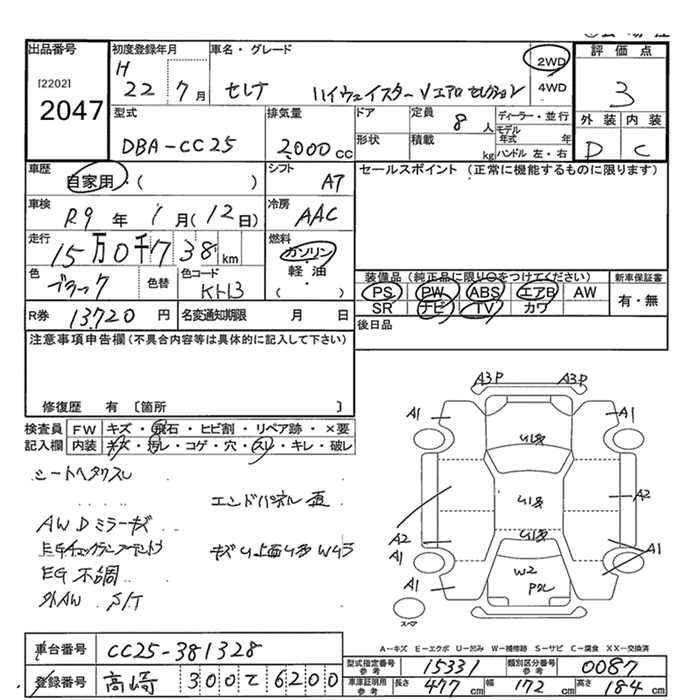 出品番号 初度登録年月 車名・グレード 2WD 評価点
[2202] H 22年 7月 セレナ ハイウェイスター Vエアロ セレクション 4WD 3
2047
型式 DBA-CC25 排気量 2,000cc ドア 定員 8人 ディーラー・並行 外装 内装
形状 積載 kg モデル年式 年 ハンドル 左・右 D C
車歴 自家用・( ) シフト AT セールスポイント (正常に機能するものに限ります)
車検 R9年 1月(12日) 冷房 AAC
走行 15万0千738km 燃料 ガソリン
軽・油
( )
色 ブラック 色替 色コード KH3 装備品(純正品に限り○をつけてください) 新車保証書
PS PW ABS エアB AW 有・無
SR ナビ TV カワ
R券 13,720円 名変通知期限 月 日 後日品
注意事項申告欄(不具合内容等は具体的に記入して下さい)
修復歴 有 〔箇所 〕
検査員 FW キズ・飛石・ヒビ割・リペア跡・×要
記入欄 内装 キズ・汚レ・コゲ・穴・スレ・キレ・破レ
シートヘタリスレ
エンドパネル直
AWDミラーキズ
EGチェックランプ
キズU 上面U
EG不調
外AW S/T
A3P A3P
A1 A1
A2
A2 A1
W2
A1
スペア
A-キズ E-エクボ U-凹み W-補修跡 S-サビ C-腐食 XX-交換済
車台番号 CC25-381328
登録番号 高崎 300 て 6200
型式指定番号 参考 15331 類別区分番号 参考 0087
車庫証明用 参考 長さ 477cm 幅 172cm 高さ 184cm